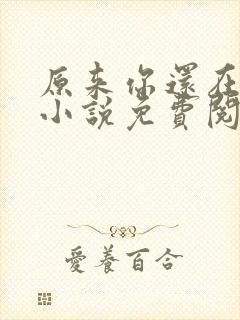 原来你還在
小說免費閱
愛養百合